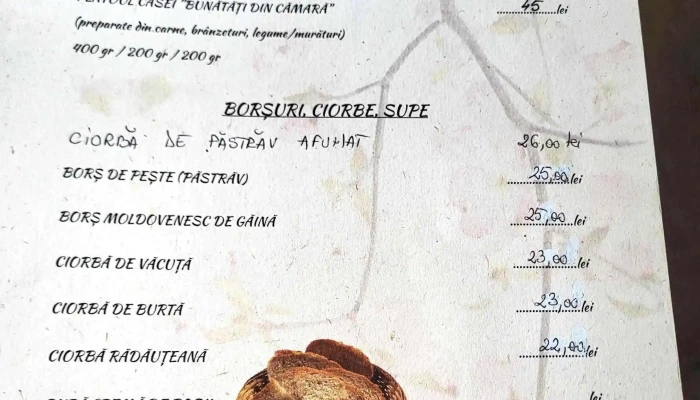 PLATOUL CASEI "BUNĂTĂȚI DIN CĂMARĂ" 45 lei
(preparate din carne, brânzeturi, legume/murături)
400 gr / 200 gr / 200 gr
BORȘURI, CIORBE, SUPE
CIORBĂ DE PĂSTRĂV AFUMAT 26,00 lei
BORȘ DE PEȘTE (PĂSTRĂV) 25,00 lei
BORȘ MOLDOVENESC DE GĂINĂ 25,00 lei
CIORBĂ DE VĂCUȚĂ 23,00 lei
CIORBĂ DE BURTĂ 23,00 lei
CIORBĂ RĂDĂUȚEANĂ 22,00 lei
lei